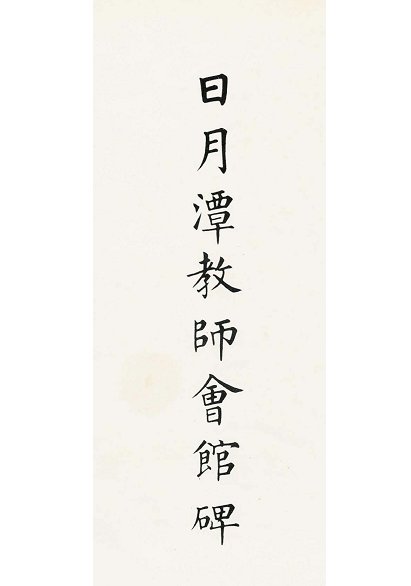 日月潭教師會館碑